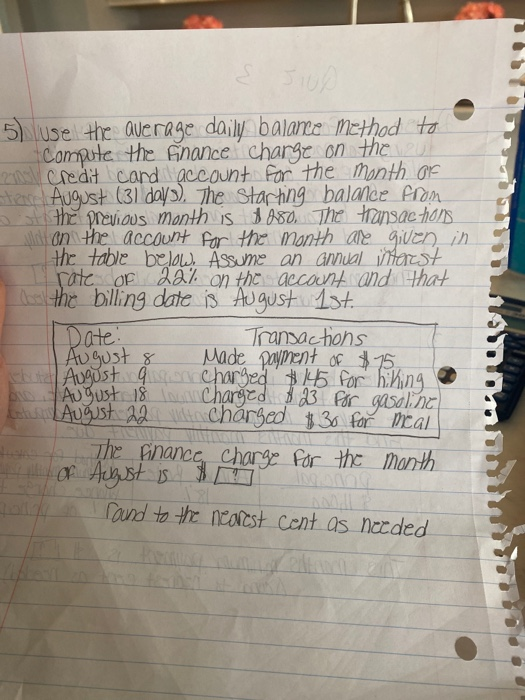 5) use the average daily balance method to
compute the finance charge on the
credit card account for the month of
August (31 days). The starting balance from
the previous month is $280. The transactions
on the account for the month are given in
the table below. Assume an annual interest
rate of 22% on the account and that
the billing date is August 1st.
Date: Transactions
August 8 Made payment of $75
August 9 charged $145 for hiking
August 18 charged $23 for gasoline
August 22 charged $30 for meal
The finance charge for the month
of August is $ [?]
round to the nearest cent as needed